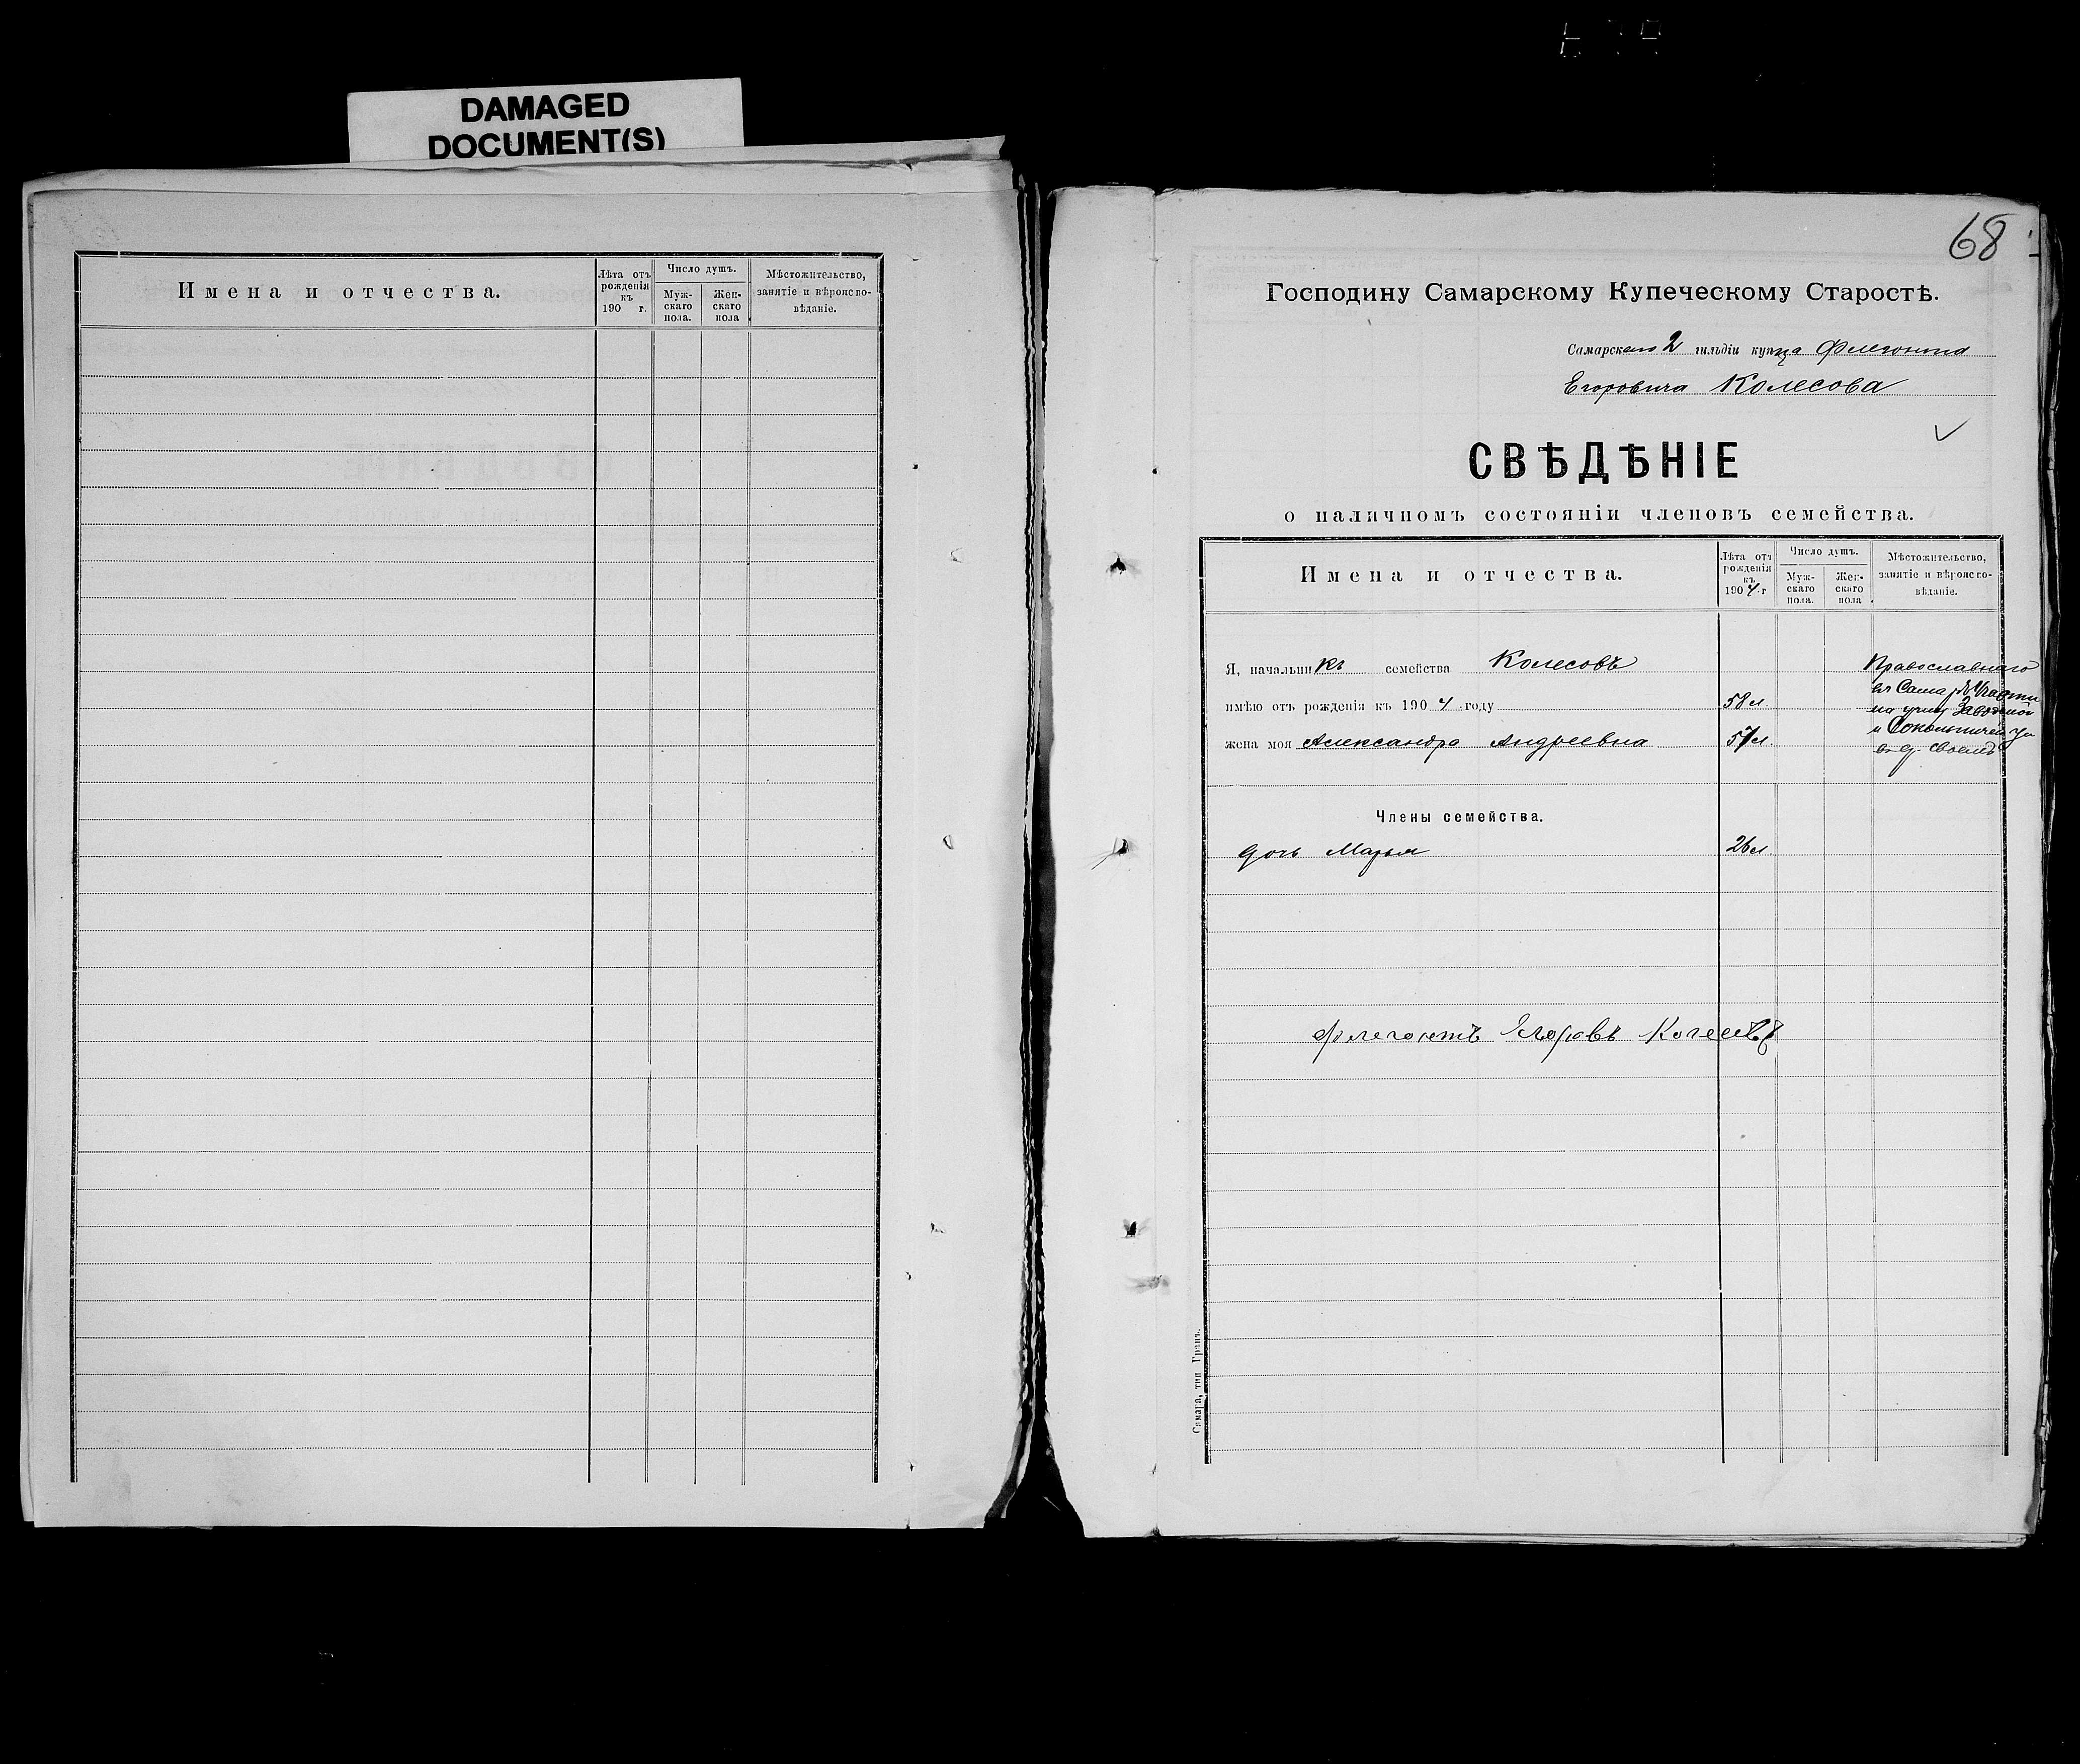 DAMAGED
DOCUMENT(S)
Имена и отчества.
Лѣта отъ рожденія къ 190 г.
Число душъ.
Мужскаго пола.
Женскаго пола
Мѣстожительство, занятіе и вѣроисповѣданіе.
68
Господину Самарскому Купеческому Старостѣ.
Самарскаго 2 гильдіи купца Флегонта
Егоровича Колесова
СВѢДѢНІЕ
о наличномъ состояніи членовъ семейства.
Имена и отчества.
Лѣта отъ рожденія къ 1904 г
Число душъ.
Мужскаго пола.
Женскаго пола
Мѣстожительство, занятіе и вѣроисповѣданіе.
Я, начальникъ семейства Колесовъ
имѣю отъ рожденія къ 1904 году 58 л.
жена моя Александра Андреевна 57 л.
Православнаго
въ Самарѣ части
на углу Заводской
и Сокольничей ул
въ д. своемъ
Члены семейства.
дочь Марья 26 л.
Флегонтъ Егоровъ Колесовъ
Самара, тип Гранъ.